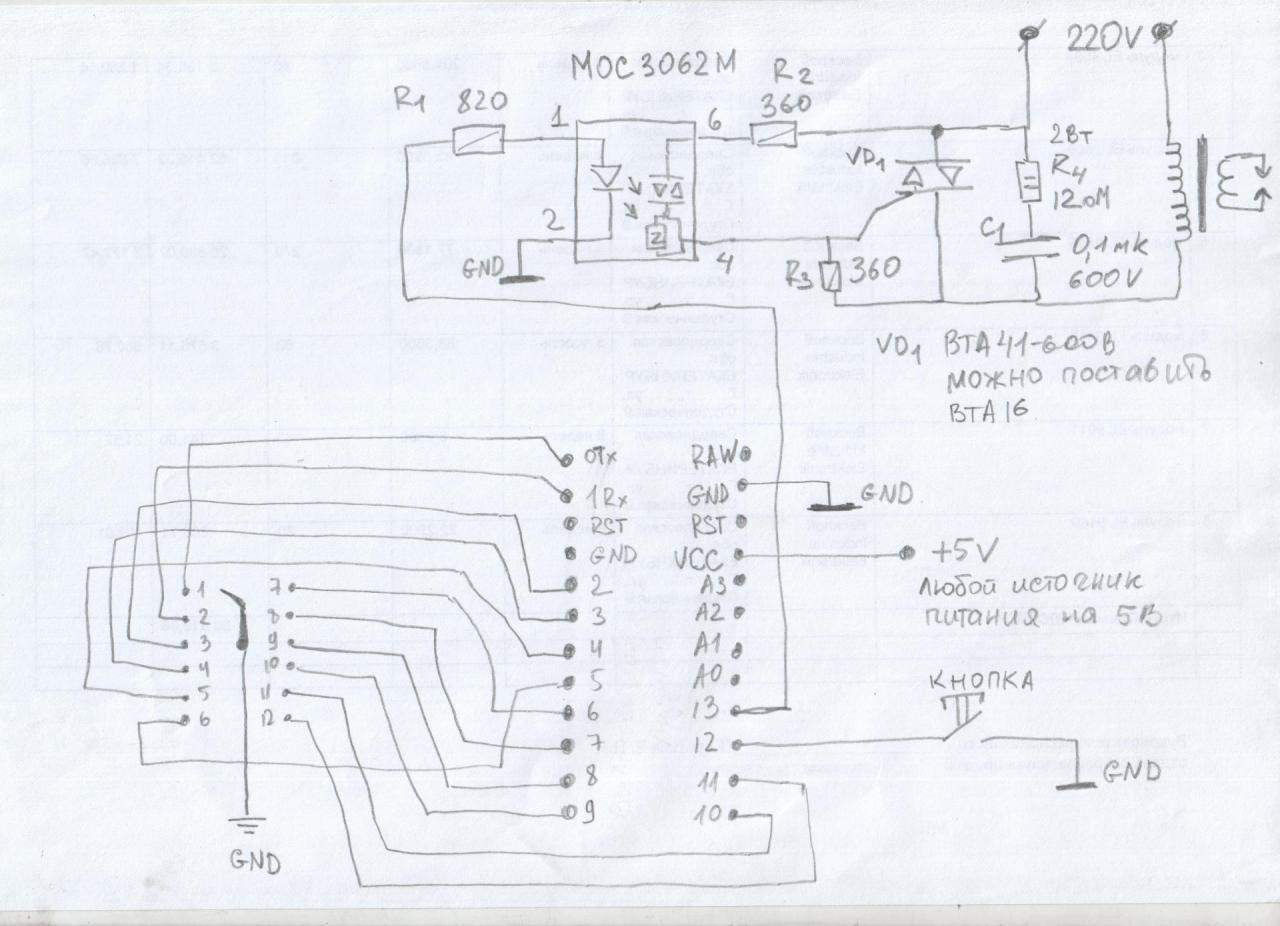 220V
MOC3062M
R1 820
R2
360
1
6
2
4
Z
GND
VD1
2Вт
R4
12ОМ
C1
0,1мк
600V
R3 360
VD1 BTA41-600B
МОЖНО ПОСТАВИТЬ
BTA16
0Tx
1Rx
RST
GND
2
3
4
5
6
7
8
9
RAW
GND
RST
VCC
A3
A2
A1
A0
13
12
11
10
GND
+5V
ЛЮБОЙ ИСТОЧНИК
ПИТАНИЯ НА 5В
КНОПКА
GND
1
2
3
4
5
6
7
8
9
10
11
12
GND